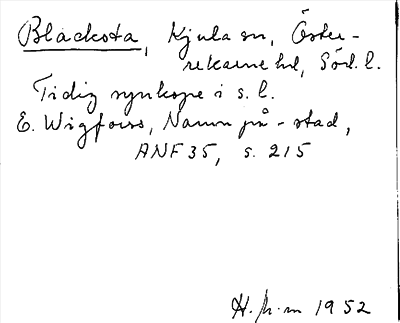 Blacksta, Kjula sn, Öster-
rekarne hd, Södl.l.
Tidig synkope i s.l.
E. Wigforss, Namn på -stad,
ANF 35, s. 215
H. 1952